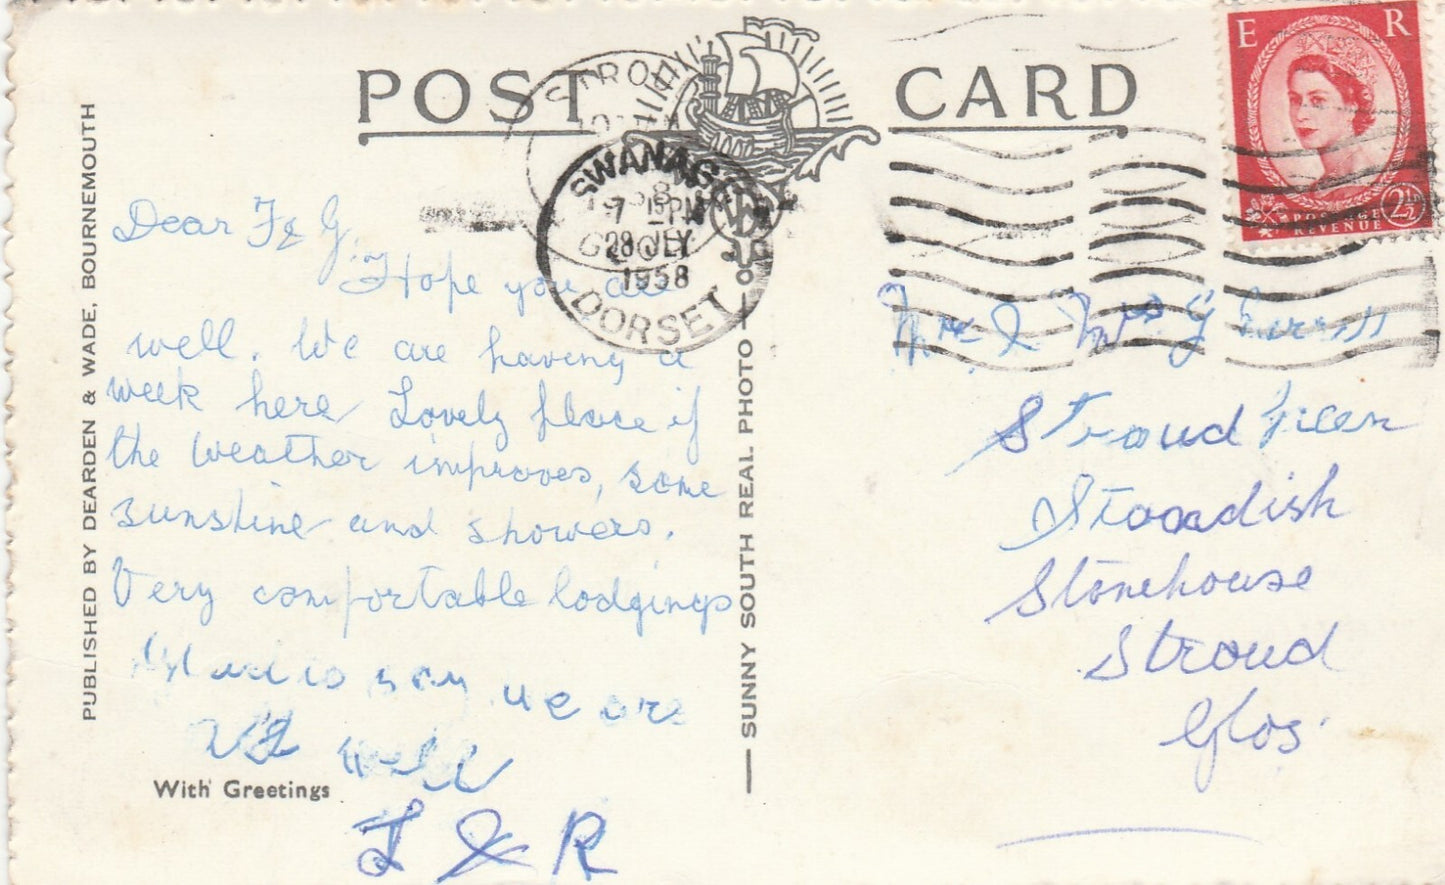 POST CARD
E R
POSTAGE REVENUE 2½
SWANAGE
7 15 PM
28 JLY
1958
DORSET
PUBLISHED BY DEARDEN & WADE, BOURNEMOUTH
SUNNY SOUTH REAL PHOTO
Dear F & G.
Hope you are
well. We are having a
week here Lovely place if
the weather improves, some
sunshine and showers.
Very comfortable lodgings
to say we are
well
With Greetings
J & R
Mr & Mrs G
Stroud Green
Standish
Stonehouse
Stroud
Glos.